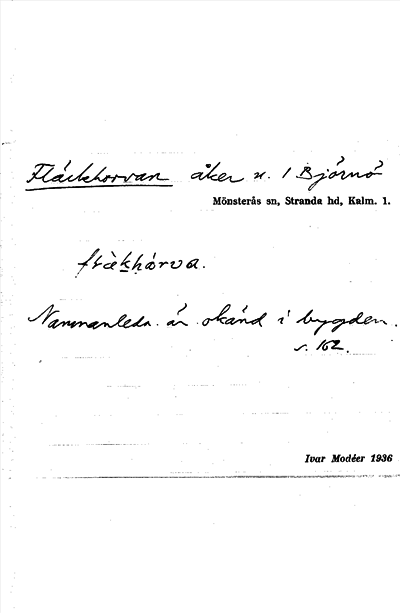 Fläckhorvan åker n. 1 Björnö
Mönsterås sn, Stranda hd, Kalm. 1.
Namnanledn. är okänd i bygden.
s. 162.
Ivar Modéer 1936